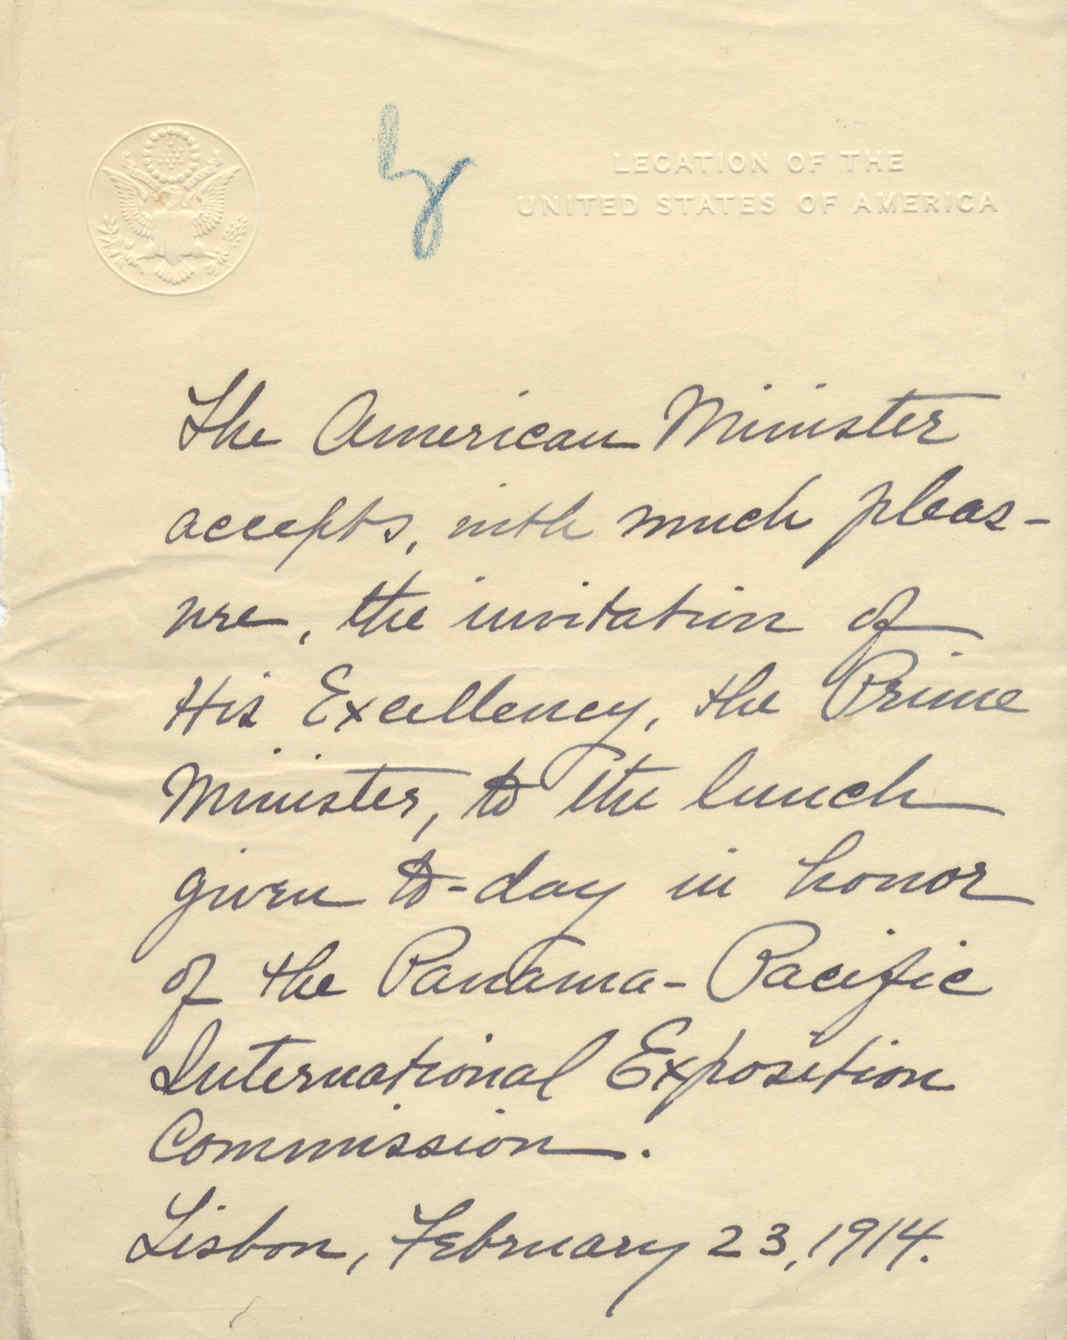 LEGATION OF THE
UNITED STATES OF AMERICA
The American Minister
accepts, with much pleas-
ure, the invitation of
His Excellency, the Prime
Minister, to the lunch
given to-day in honor
of the Panama-Pacific
International Exposition
Commission.
Lisbon, February 23, 1914.